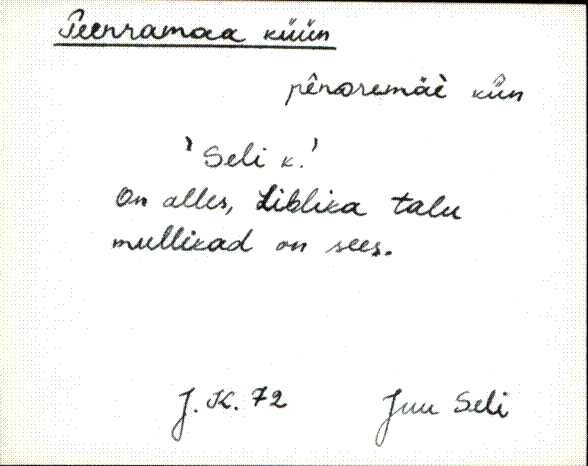 Peenramaa küün
pênd̀remäè kûn
'Seli k.'
On alles, Liblika talu
mullikad on sees.
J. K. 72 Juu Seli